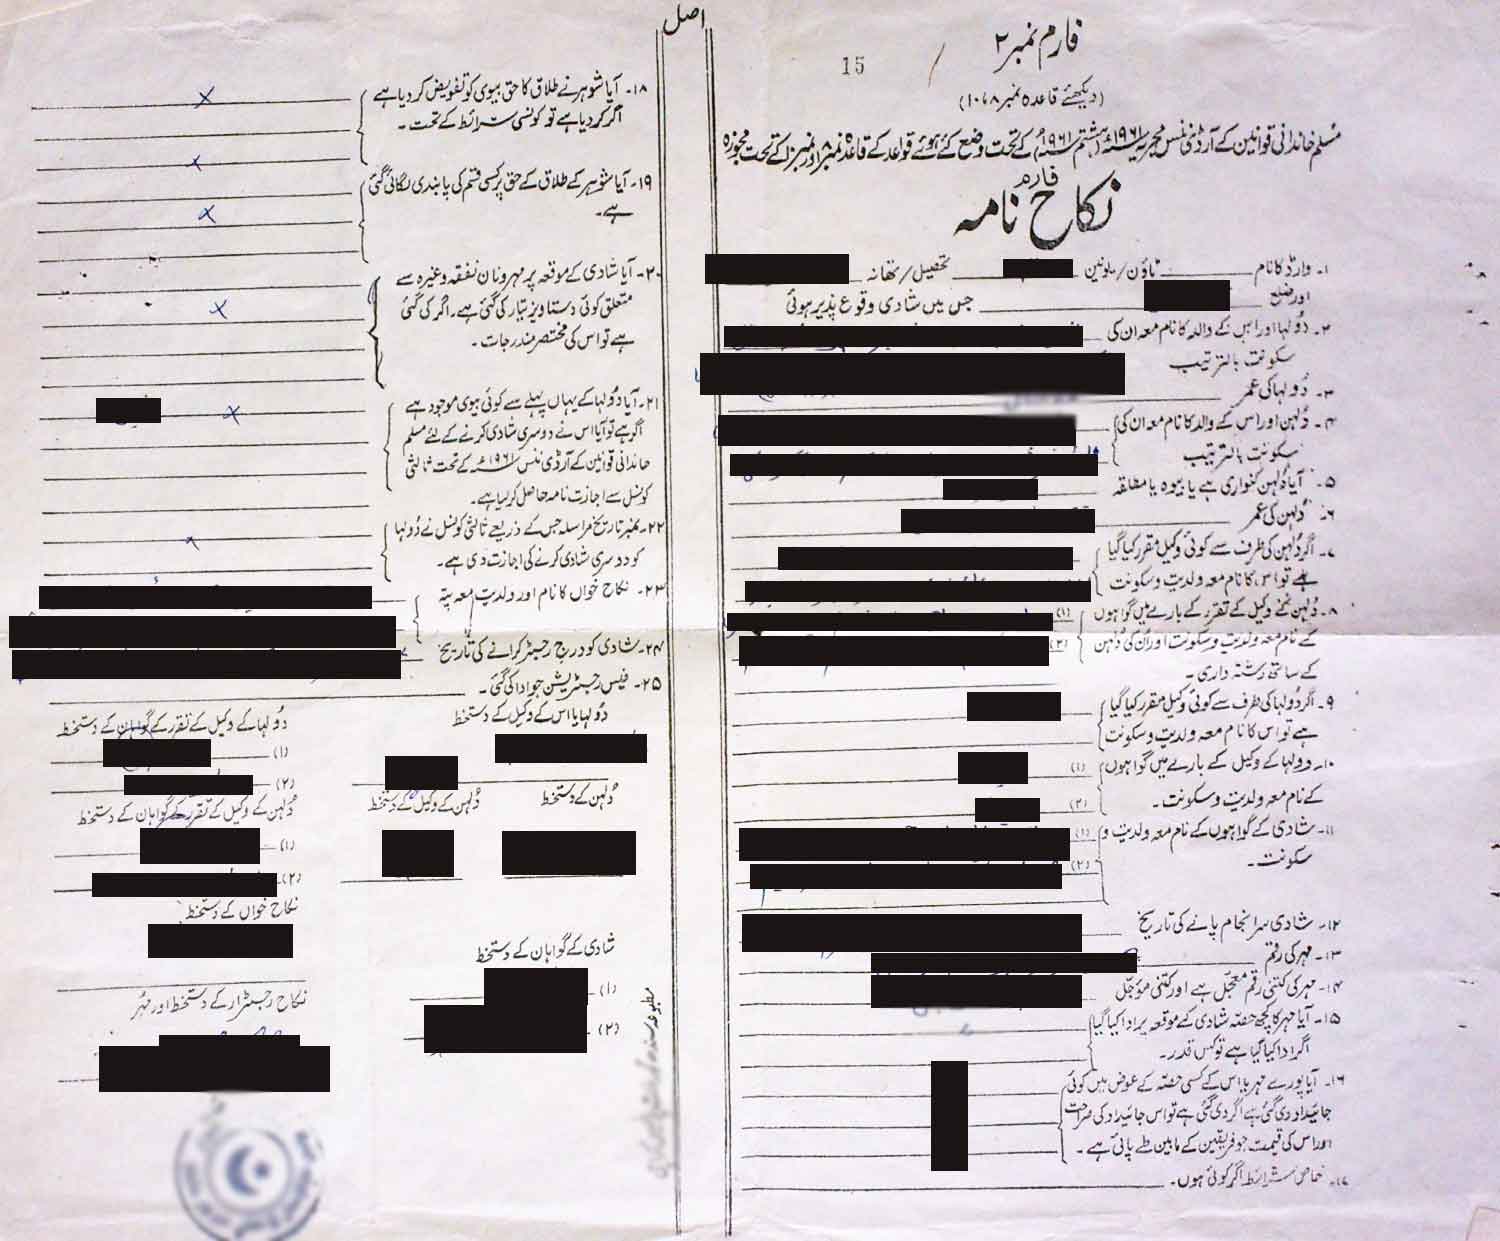 اصل
فارم نمبر ۲
15
(دیکھئے قاعدہ نمبر ۸، ۱۰)
مسلم خاندانی قوانین کے آرڈی ننس مجریہ ۱۹۶۱ء (ہشتم ۱۹۶۱ء) کے تحت وضع کئے ہوئے قواعد کے قاعدہ نمبر ۸ اور نمبر ۱۰ کے تحت مجوزہ
فارم
نکاح نامہ
۱۔ وارڈ کا نام ٹاؤن/یونین تحصیل/تھانہ
اور ضلع جس میں شادی وقوع پذیر ہوئی
۲۔ دُولہا اور اس کے والد کا نام معہ ان کی
سکونت بالترتیب
۳۔ دُولہا کی عمر
۴۔ دُلہن اور اس کے والد کا نام معہ ان کی
سکونت بالترتیب
۵۔ آیا دُلہن کنواری ہے یا بیوہ یا مطلقہ
۶۔ دُلہن کی عمر
۷۔ اگر دُلہن کی طرف سے کوئی وکیل مقرر کیا گیا
ہے تو اس کا نام معہ ولدیت و سکونت
۸۔ دُلہن کے وکیل کے تقرر کے بارے میں گواہوں (۱)
کے نام معہ ولدیت و سکونت اور ان کی دُلہن (۲)
کے ساتھ رشتہ داری۔
۹۔ اگر دُولہا کی طرف سے کوئی وکیل مقرر کیا گیا
ہے تو اس کا نام معہ ولدیت و سکونت
۱۰۔ دولہا کے وکیل کے بارے میں گواہوں (۱)
کے نام معہ ولدیت و سکونت۔ (۲)
۱۱۔ شادی کے گواہوں کے نام معہ ولدیت و (۱)
سکونت۔ (۲)
۱۲۔ شادی سرانجام پانے کی تاریخ
۱۳۔ مہر کی رقم
۱۴۔ مہر کی کتنی رقم معجّل ہے اور کتنی مؤجّل
۱۵۔ آیا مہر کا کچھ حصّہ شادی کے موقعہ پر ادا کیا گیا
اگر ادا کیا گیا ہے تو کس قدر۔
۱۶۔ آیا پورے مہر یا اس کے کسی حصّہ کے عوض میں کوئی
جائیداد دی گئی ہے اگر دی گئی ہے تو اس جائیداد کی صراحت
اور اس کی قیمت جو فریقین کے مابین طے پائی ہے۔
۱۷۔ خاص شرائط اگر کوئی ہوں۔
۱۸۔ آیا شوہر نے طلاق کا حق بیوی کو تفویض کر دیا ہے
اگر کر دیا ہے تو کونسی شرائط کے تحت۔
۱۹۔ آیا شوہر کے طلاق کے حق پر کسی قسم کی پابندی لگائی گئی
ہے۔
۲۰۔ آیا شادی کے موقعہ پر مہر و نان نفقہ وغیرہ سے
متعلق کوئی دستاویز تیار کی گئی ہے۔ اگر کی گئی
ہے تو اس کی مختصر مندرجات۔
۲۱۔ آیا دُولہا کے یہاں پہلے سے کوئی بیوی موجود ہے
اگر ہے تو آیا اس نے دوسری شادی کرنے کے لئے مسلم
خاندانی قوانین کے آرڈی ننس ۱۹۶۱ء کے تحت ثالثی
کونسل سے اجازت نامہ حاصل کر لیا ہے۔
۲۲۔ نمبر تاریخ مراسلہ جس کے ذریعے ثالثی کونسل نے دُولہا
کو دوسری شادی کرنے کی اجازت دی ہے۔
۲۳۔ نکاح خواں کا نام اور ولدیت معہ پتہ
۲۴۔ شادی کو درج رجسٹر کرانے کی تاریخ
۲۵۔ فیس رجسٹریشن جو ادا کی گئی۔
دُولہا یا اس کے وکیل کے دستخط
دُولہا کے وکیل کے تقرر کے گواہان کے دستخط
(۱)
(۲)
دُلہن کے دستخط
دُلہن کے وکیل کے دستخط
دُلہن کے وکیل کے تقرر کے گواہان کے دستخط
(۱)
(۲)
نکاح خواں کے دستخط
شادی کے گواہان کے دستخط
(۱)
(۲)
نکاح رجسٹرار کے دستخط اور مُہر
مطبوعہ سندھ